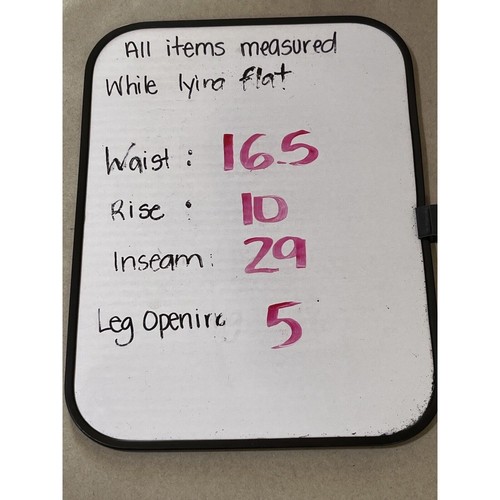 All items measured
While lying flat
Waist : 16.5
Rise : 10
Inseam : 29
Leg Opening 5